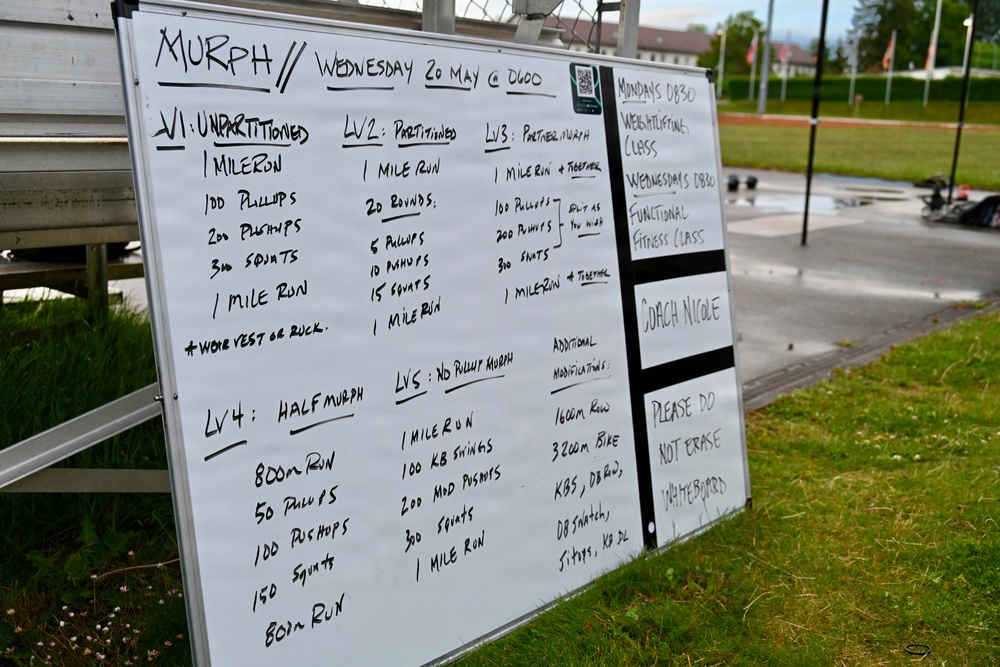 MURPH // WEDNESDAY 20 MAY @ 0600
LV1: UNPARTITIONED
1 MILE RUN
100 PULLUPS
200 PUSHUPS
300 SQUATS
1 MILE RUN
* WEAR VEST OR RUCK.
LV2: PARTITIONED
1 MILE RUN
20 ROUNDS:
5 PULLUPS
10 PUSHUPS
15 SQUATS
1 MILE RUN
LV3: PARTNER MURPH
1 MILE RUN * TOGETHER
100 PULLUPS
200 PUSHUPS
300 SQUATS
SPLIT AS
YOU WISH
1 MILE RUN * TOGETHER
LV4: HALF MURPH
800m RUN
50 PULLUPS
100 PUSHUPS
150 SQUATS
800m RUN
LV5: NO PULLUP MURPH
1 MILE RUN
100 KB SWINGS
200 MOD PUSHUPS
300 SQUATS
1 MILE RUN
ADDITIONAL
MODIFICATIONS:
1600m Row
3200m BIKE
KBS, DB ROW,
DB SNATCH,
Situps, KB DL
MONDAYS 0830
WEIGHTLIFTING
CLASS
WEDNESDAYS 0830
FUNCTIONAL
FITNESS CLASS
COACH NICOLE
PLEASE DO
NOT ERASE
WHITEBOARD